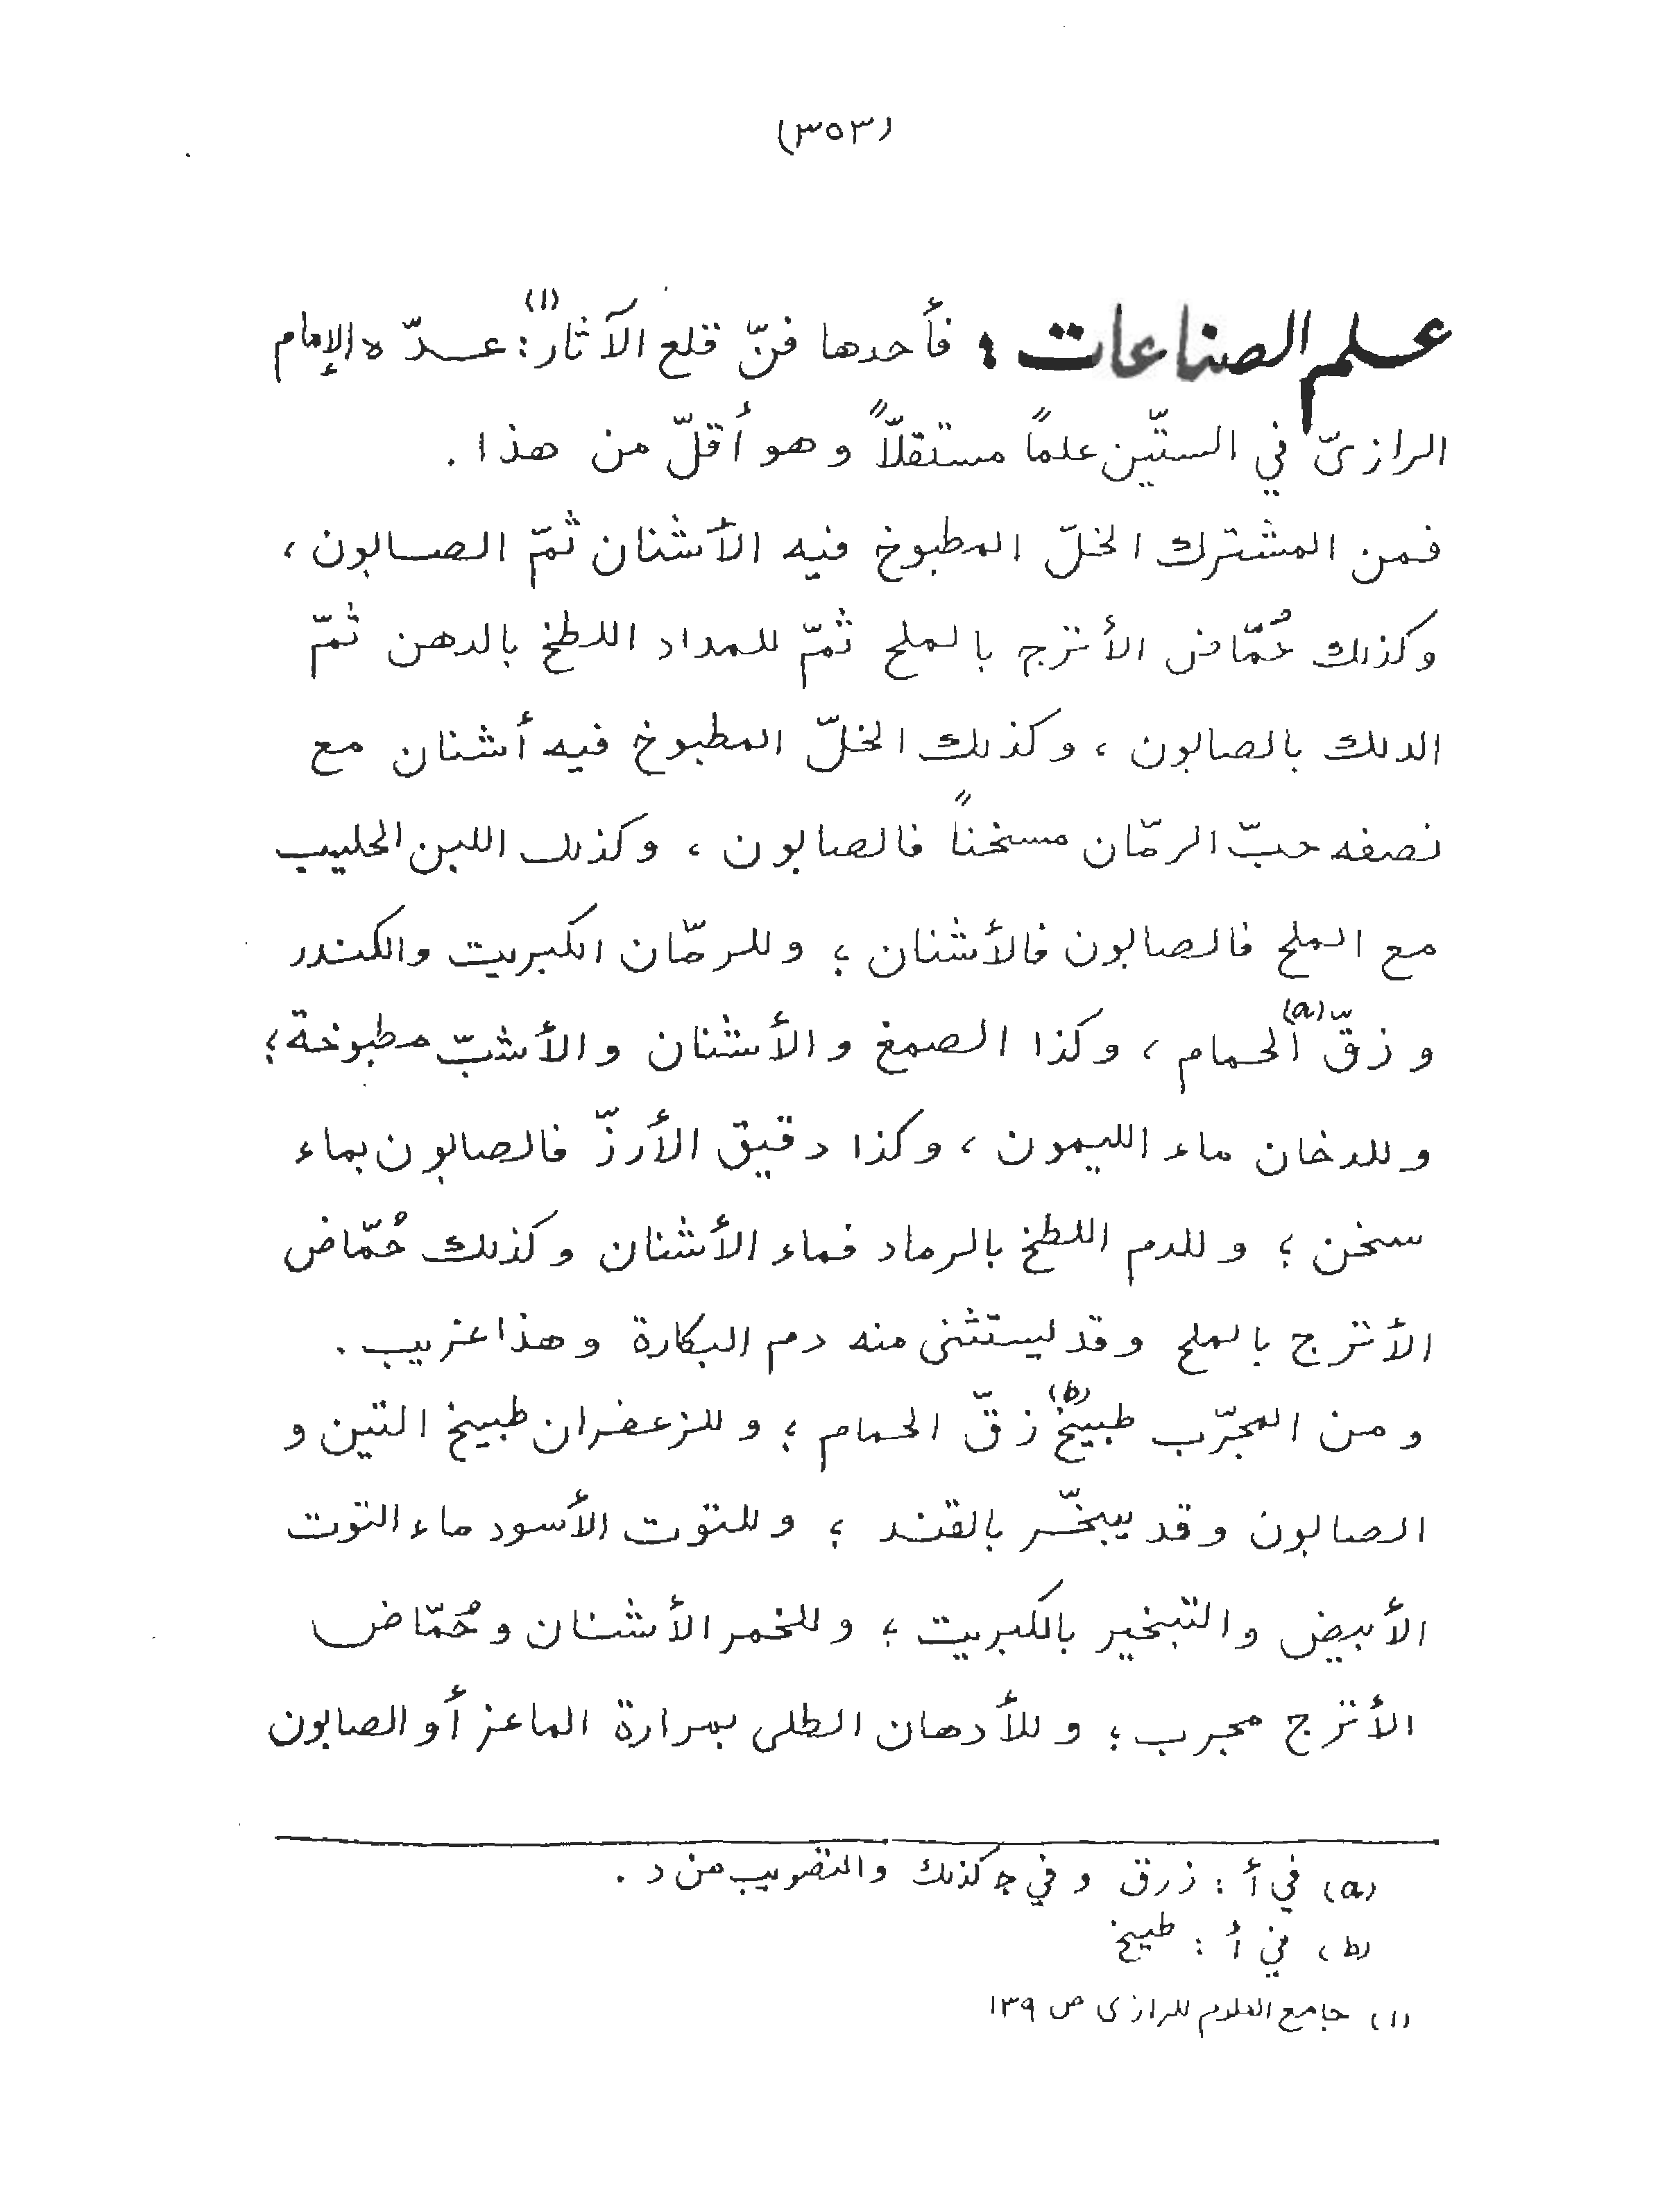 (٣٥٣)
علم الصناعات : فأحدها فنّ قلع الآثار(١): عـدّه الإمام
الرازىّ في الستّين علماً مستقلّاً وهو أقلّ من هذا .
فمن المشترك الخلّ المطبوخ فيه الأشنان ثمّ الصابون ،
وكذلك حُمّاض الأترج بالملح ثمّ للمداد اللطخ بالدهن ثمّ
الدلك بالصابون ، وكذلك الخلّ المطبوخ فيه أشنان مع
نصفه حبّ الرمّان مسخناً فالصابون ، وكذلك اللبن الحليب
مع الملح فالصابون فالأشنان ؛ وللرمّان الكبريت والكندر
وزقّ(a) الحمام ، وكذا الصمغ والأشنان والأشبّ مطبوخة ؛
وللدخان ماء الليمون ، وكذا دقيق الأرزّ فالصابون بماء
سخن ؛ وللدم اللطخ بالرماد فماء الأشنان وكذلك حُمّاض
الأترج بالملح وقد ليستثنى منه دم البكارة وهذا غريب .
ومن المجرّب طبيخ(b) زقّ الحمام ؛ وللزعفران طبيخ التين و
الصابون وقد يبخّر بالقند ؛ وللتوت الأسود ماء التوت
الأبيض والتبخير بالكبريت ؛ وللخمر الأشنان وحُمّاض
الأترج مجرب ؛ وللأدهان الطلى بمرارة الماعز أو الصابون
(a) في أ : زرق وفي ج كذلك والتصويب من د .
(b) في أ : طيبخ
(١) جامع العلوم للرازى ص ١٣٩